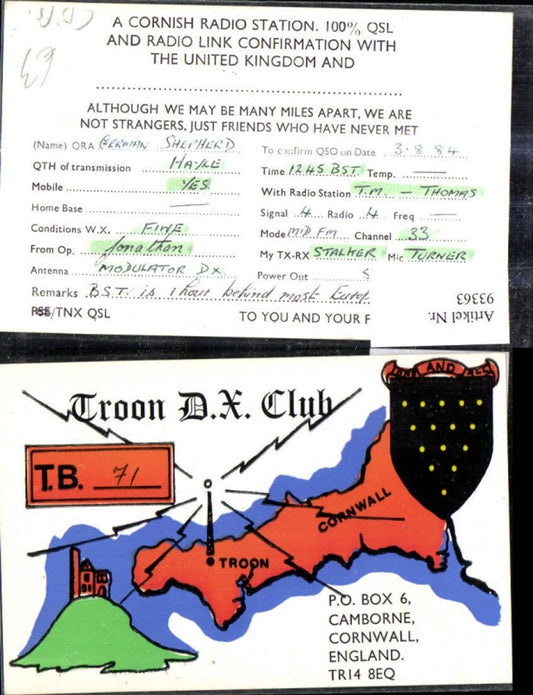 A CORNISH RADIO STATION. 100% QSL
AND RADIO LINK CONFIRMATION WITH
THE UNITED KINGDOM AND
ALTHOUGH WE MAY BE MANY MILES APART, WE ARE
NOT STRANGERS, JUST FRIENDS WHO HAVE NEVER MET
(Name) QRA GERMAN SHEPHERD To confirm QSO on Date 3-8-84
QTH of transmission HAYLE Time 1245 BST. Temp. —
Mobile YES With Radio Station T.M. - THOMAS
Home Base — Signal 4 Radio 4 Freq —
Conditions W.X. FINE Mode MID FM Channel 33
From Op. Jonathan My TX-RX STALKER Mic TURNER
Antenna MODULATOR DX Power Out
Remarks B.S.T. is 1 hour behind most Europ
PSE/TNX QSL TO YOU AND YOUR F
Artikel Nr
93363
Troon D.X. Club
AND
T.B. 71
CORNWALL
TROON
P.O. BOX 6,
CAMBORNE,
CORNWALL,
ENGLAND.
TR14 8EQ